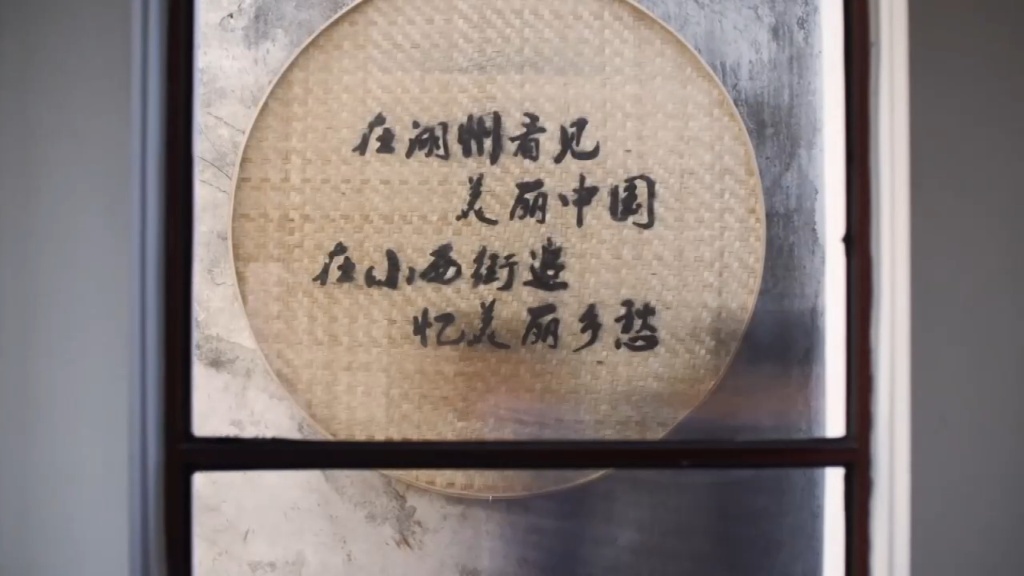 在湖州看见
美丽中国
在小西街追
忆美丽乡愁